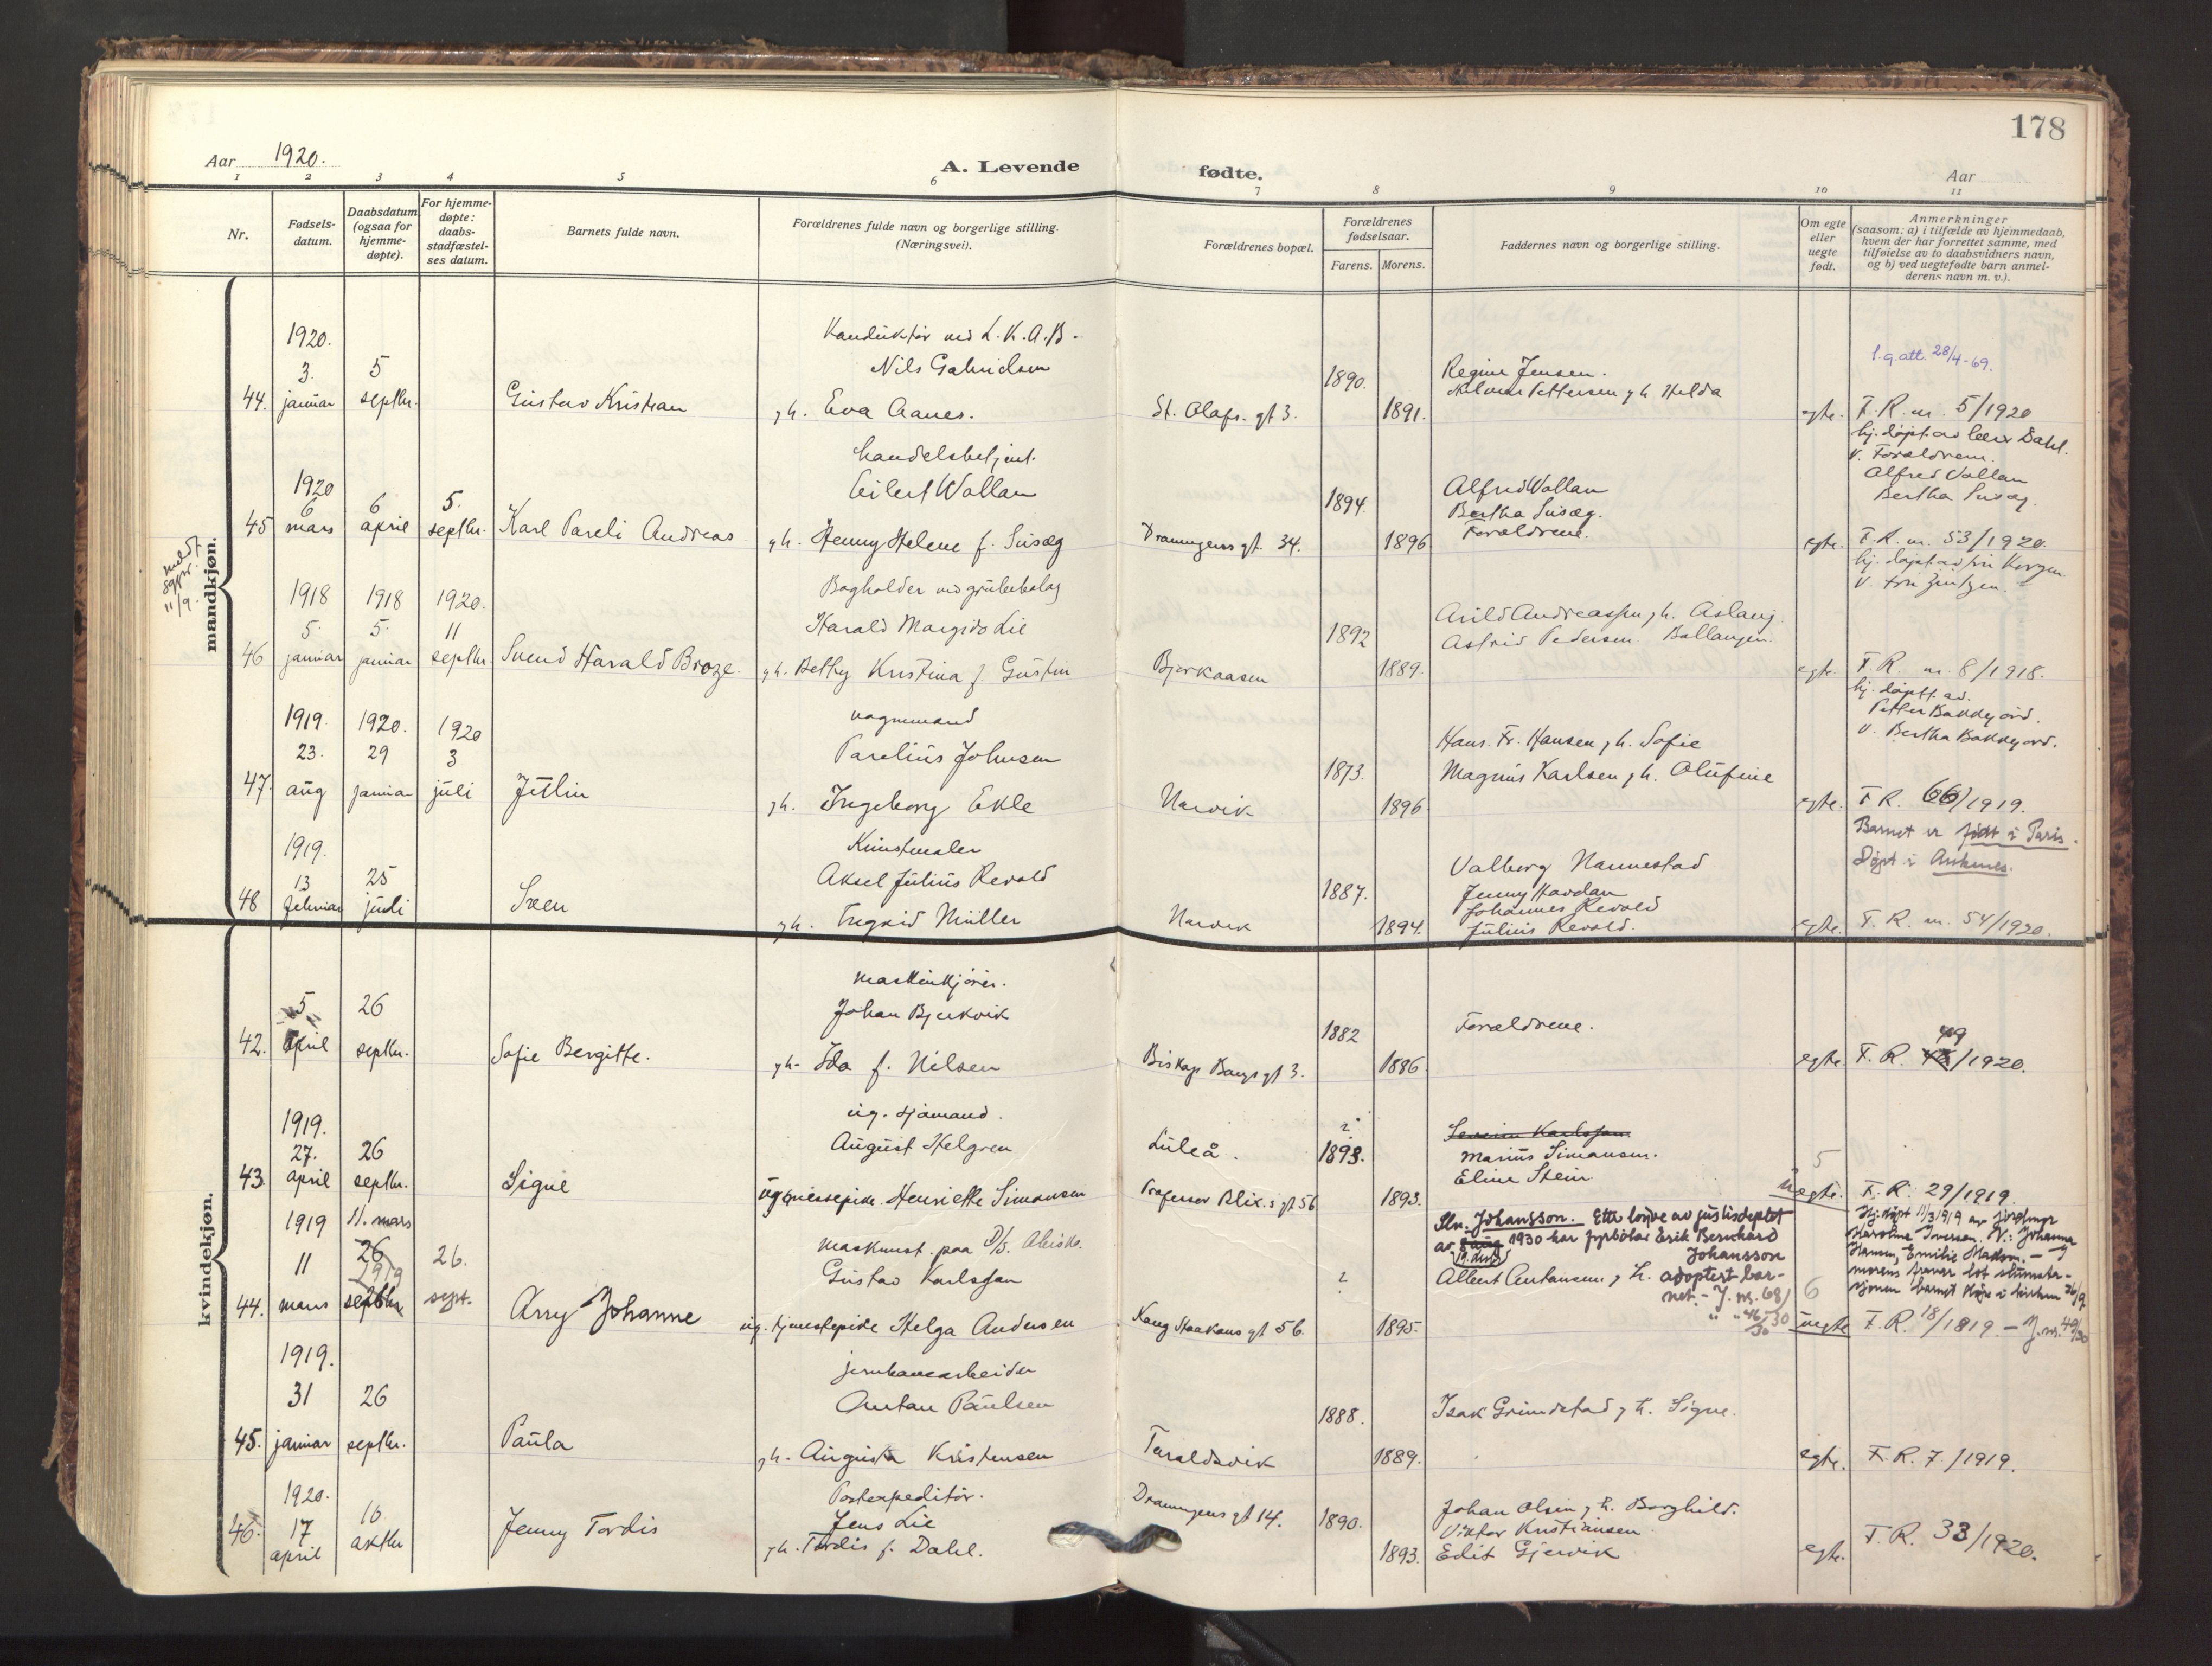 178
Aar 1920.
A. Levende
fødte.
Aar
1 2 3 4 5 6 7 8 9 10 11
Nr.
Fødsels-
datum.
Daabsdatum
(ogsaa for
hjemme-
døpte).
For hjemme-
døpte:
daabs-
stadfæstel-
ses datum.
Barnets fulde navn.
Forældrenes fulde navn og borgerlige stilling.
(Næringsvei).
Forældrenes bopæl.
Forældrenes
fødselsaar.
Farens. Morens.
Faddernes navn og borgerlige stilling.
Om egte
eller
uegte
født.
Anmerkninger
(saasom: a) i tilfælde av hjemmedaab,
hvem der har forrettet samme, med
tilføielse av to daabsvidners navn,
og b) ved uegtefødte barn anmel-
derens navn m. v.).
mandkjøn.
meldt
11/9.
44.
1920.
3.
januar
5
septbr.
Gustav Kristian
Konduktør ved L.K.A.B.
Nils Gabrielsen
gh. Eva Aanes.
St. Olafs. gt 3.
1890.
1891.
Regine Jensen.
Hilmar Pettersen gh Hilda
egte.
l.q.att. 28/4-69.
F.R. nr. 5/1920
45
1920
6
mars
6
april
5.
septbr.
Karl Pareli Andreas
handelsbetjent.
Eilert Wollan
gh. Henny Helene f. Susæg
Dronningens gt. 34.
1894.
1896
Alfred Wollan
Bertha Susæg.
Forældrene.
egte.
hj. døpt av Dahl.
v. Forældrene.
Alfred Vollan
Bertha Susæg
F.R. nr. 53/1920.
46
1918
5.
januar
1918
5.
januar
1920.
11
septbr.
Svend Harald Broze.
Bogholder ved grubebolag
Harald Margido Lie
gh. Betty Kristina f. Gustin
Bjerkaasen
1892
1889.
Arild Andreassen gh. Aslaug.
Astrid Pedersen Ballangen.
egte.
hj. døpt av fru Korgen
v. Fru
F.R. nr. 8/1918.
47.
1919.
23.
aug
1920.
29
januar
1920
3
juli
Jutlin
vognmand
Parelius Johnsen
gh. Ingeborg Ekle
Narvik
1873.
1896
Hans. Fr. Hansen gh. Sofie
Magnus Karlsen gh. Olufine
egte.
hj. døpt. av.
Petter Bakkejord.
v. Bertha Bakkejord.
F R. 66/1919.
48
1919.
13
februar
25
juli
Sven
Kunstmaler
Aksel Julius Revold
gh. Ingrid Müller
Narvik
1887.
1894.
Valborg Nannestad
Jenny Havdan
Johannes Revold
Julius Revold.
egte.
Barnet er født i Paris.
Døpt i Ankenes.
F. R. nr. 54/1920.
kvindekjøn.
42.
5
april
26
septbr.
Sofie Bergitte.
maskinkjører.
Johan Bjerkvik
gh. Ida f. Nilsen
Biskop Bangs gt 3.
1882
1886.
Forældrene.
egte.
F. R. 49/1920.
43
1919.
27.
april
26
septbr.
Signe
ug. sjømand.
August Helgren
ug Henriette Simonsen
Luleå.
Professor Blix.s gt 56
?
1893.
1893.
Severin Karlssen
Marius Simonsen.
Eline Stein
5
uegte.
F. R. 29/1919.
44.
1919
11
mars
11. mars
26
1919
septbr
26.
sept.
Arry Johanne
maskinist. paa D/S. Abisko.
Gustav Karlssen
ug. tjenestepike Helga Andersen
Kong Haakons gt 56.
?
1895.
Sln. Johansson. Etter lovve av justisdeptet
av 19. aug 1930 har fyrbøter Erik Bernhard
Johansson
Albert Antonsen gh. adoptert bar-
net. - J. nr. 68/
" " 46/30
30
6
uegte
Hj. døpt 11/3 1919 av jordmor
Karoline Iversen. V.: Johanna
Hansen, Emilie Madsen. - I
morens fravær lot
barnet døpe i kirken 26/9
F.R. 18/1819. - J.nr. 49/30
45.
1919.
31
januar
26
septbr.
Paula
jernbanearbeider
Anton Paulsen
gh. Augusta Kristensen
Taraldsvik
1888.
1889.
Isak Grindstad gh. Signe.
egte.
F. R. 7/1919.
46.
1920.
17
april
10
oktbr
Jenny Tordis
Postexpeditør.
Jens Lie
gh. Tordis f. Dahl.
Dronningens gt 14.
1890.
1893.
Johan Olsen gh. Borghild.
Viktor Kristiansen
Edit Gjervik
egte.
F.R. 33/1920.